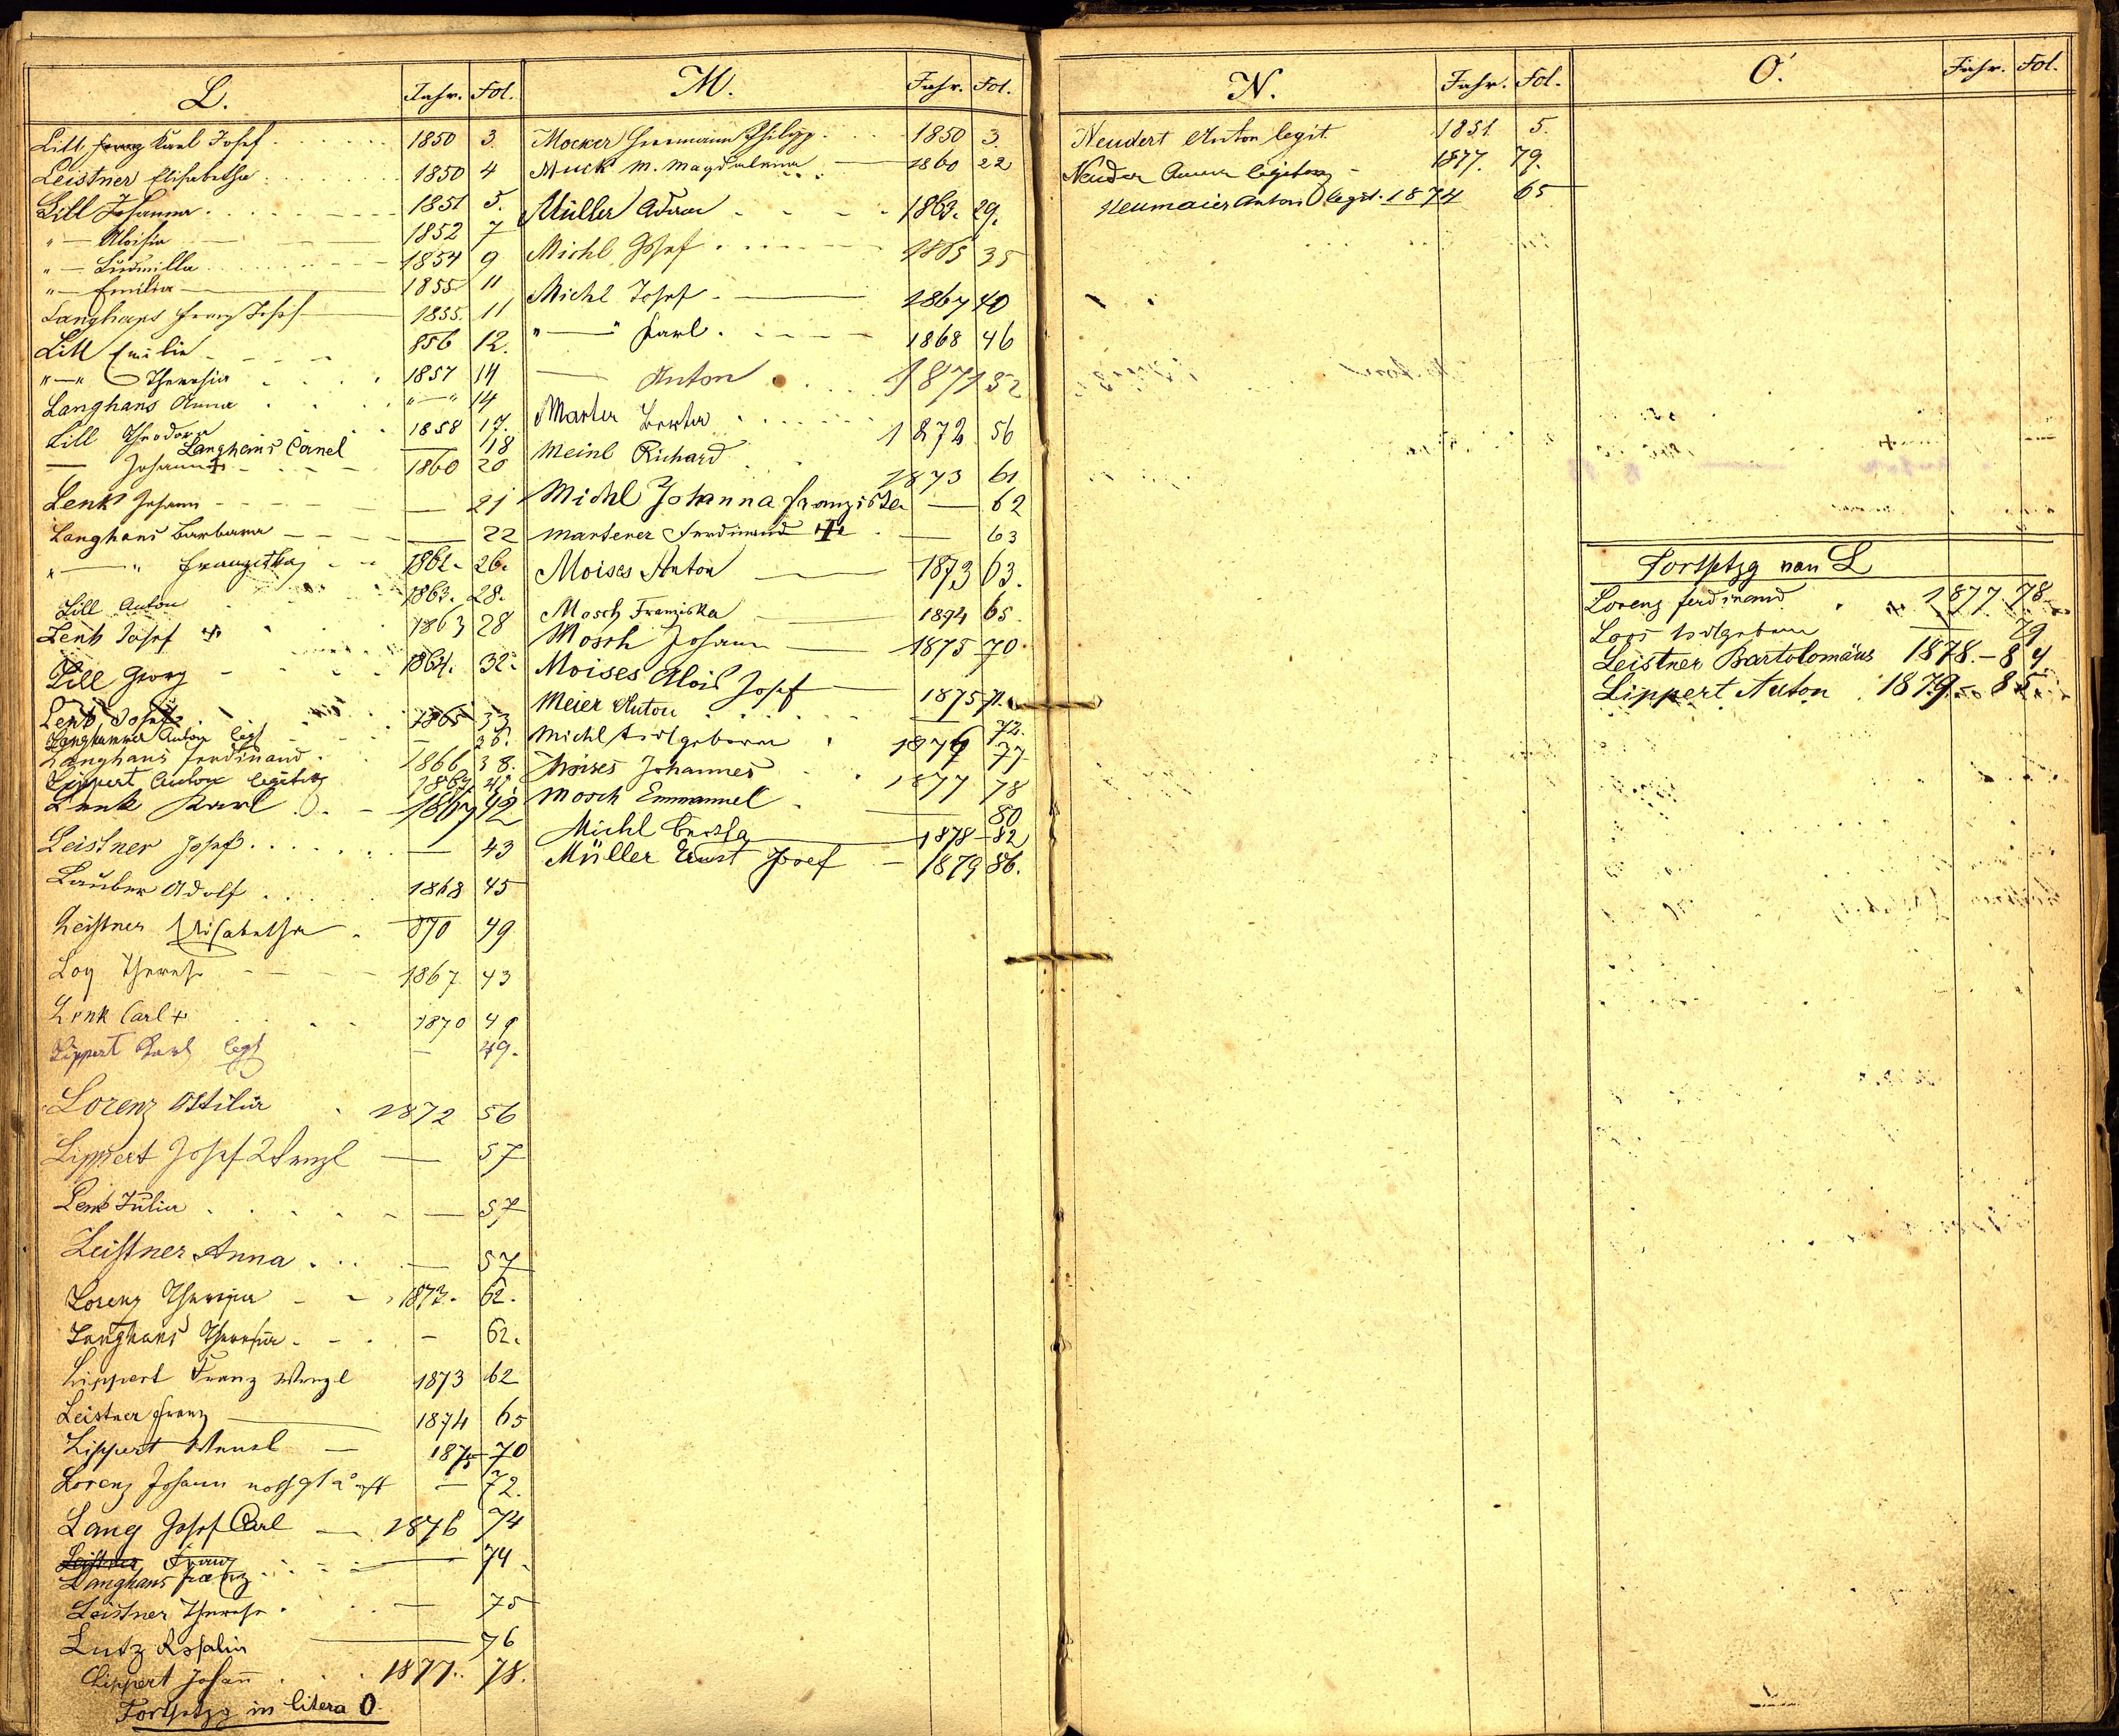 L. Jahr. Fol.
Lill Franz Karl Josef 1850 3.
Leistner Elisabetha 1850 4
Lill Johanna 1851 5.
"— Aloisia 1852 7
"— Ludmilla 1854 9
"— Emilia 1855 11
Langhans Franz Josef 1855. 11
Lill Emilie 856 12.
"—" Theresia 1857 14
Langhans Anna "—" 14
Lill Theodora 1858 17.
Langhans Cornel — 18
— Johann + 1860 20
Lenk Johann — 21
Langhans Barbara — 22
"—" Franziska 1862. 26.
Lill Anton 1863. 28.
Lenk Josef + 1863 28
Lill Georg 1864. 32.
Lenk Josef 1865 33
Langhammer Anton legt — 36.
Langhans Ferdinand 1866 38.
Lippert Anton 1867 41.
Lenk Karl 1867 42
Leistner Josef — 43
Lauber Adolf 1868 45
Leistner Elisabetha 870 49
Loy Theres. 1867 43
Lenk Carl + 1870 49
Lippert Karl legt — 49.
Lorenz Ottilia 1872 56
Lippert Josef Wenzl — 57
Lenk Julia — 57
Leistner Anna — 57
Lorenz Theresia 1873. 62.
Langhans Theresia — 62.
Lippert Franz Wenzl 1873 62
Leistner Franz 1874 65
Lippert Wenzl — 1875 70
Lorenz Johann nothgetauft — 72.
Lang Josef Carl — 1876 74
Leistner Franz — 74
Langhans Franz
Leistner Therese — 75
Lutz Rosalia — 76
Lippert Johann 1877. 78.
Fortsetzg in litera O.
M. Jahr. Fol.
Mocker Hermann Philipp 1850 3.
Muck M. Magdalena 1860 22
Müller Adam 1863. 29.
Michl Josef 1865 35
Michl Josef 1867 40
"—" Karl 1868 46
— Anton 1871 52
Marter Berta 1872 56
Meinl Richard 1873 61
Michl Johanna Franziska — 62
Martener Ferdinand + — 63
Moises Anton — 1873 63.
Mosch Franziska 1874 65
Mosch Johann 1875 70.
Moises Alois Josef 1875 71.
Meier Anton — 72.
Michl todtgeboren 1876 77
Moises Johannes 1877 78
Mosch Emmanuel — 80
Michl Bertha 1878 82
Müller Ernst Josef — 1879 86.
N. Jahr. Fol.
Neudert Anton legit. 1851 5.
Neuder Anna 1877. 79.
Neumaier Anton legit. 1874 65
O. Jahr. Fol.
Fortsetzg von L
Lorenz Ferdinand 1877 78
Loos todtgeboren — 79
Leistner Bartolomäus 1878. — 84.
Lippert Anton 1879. 85.